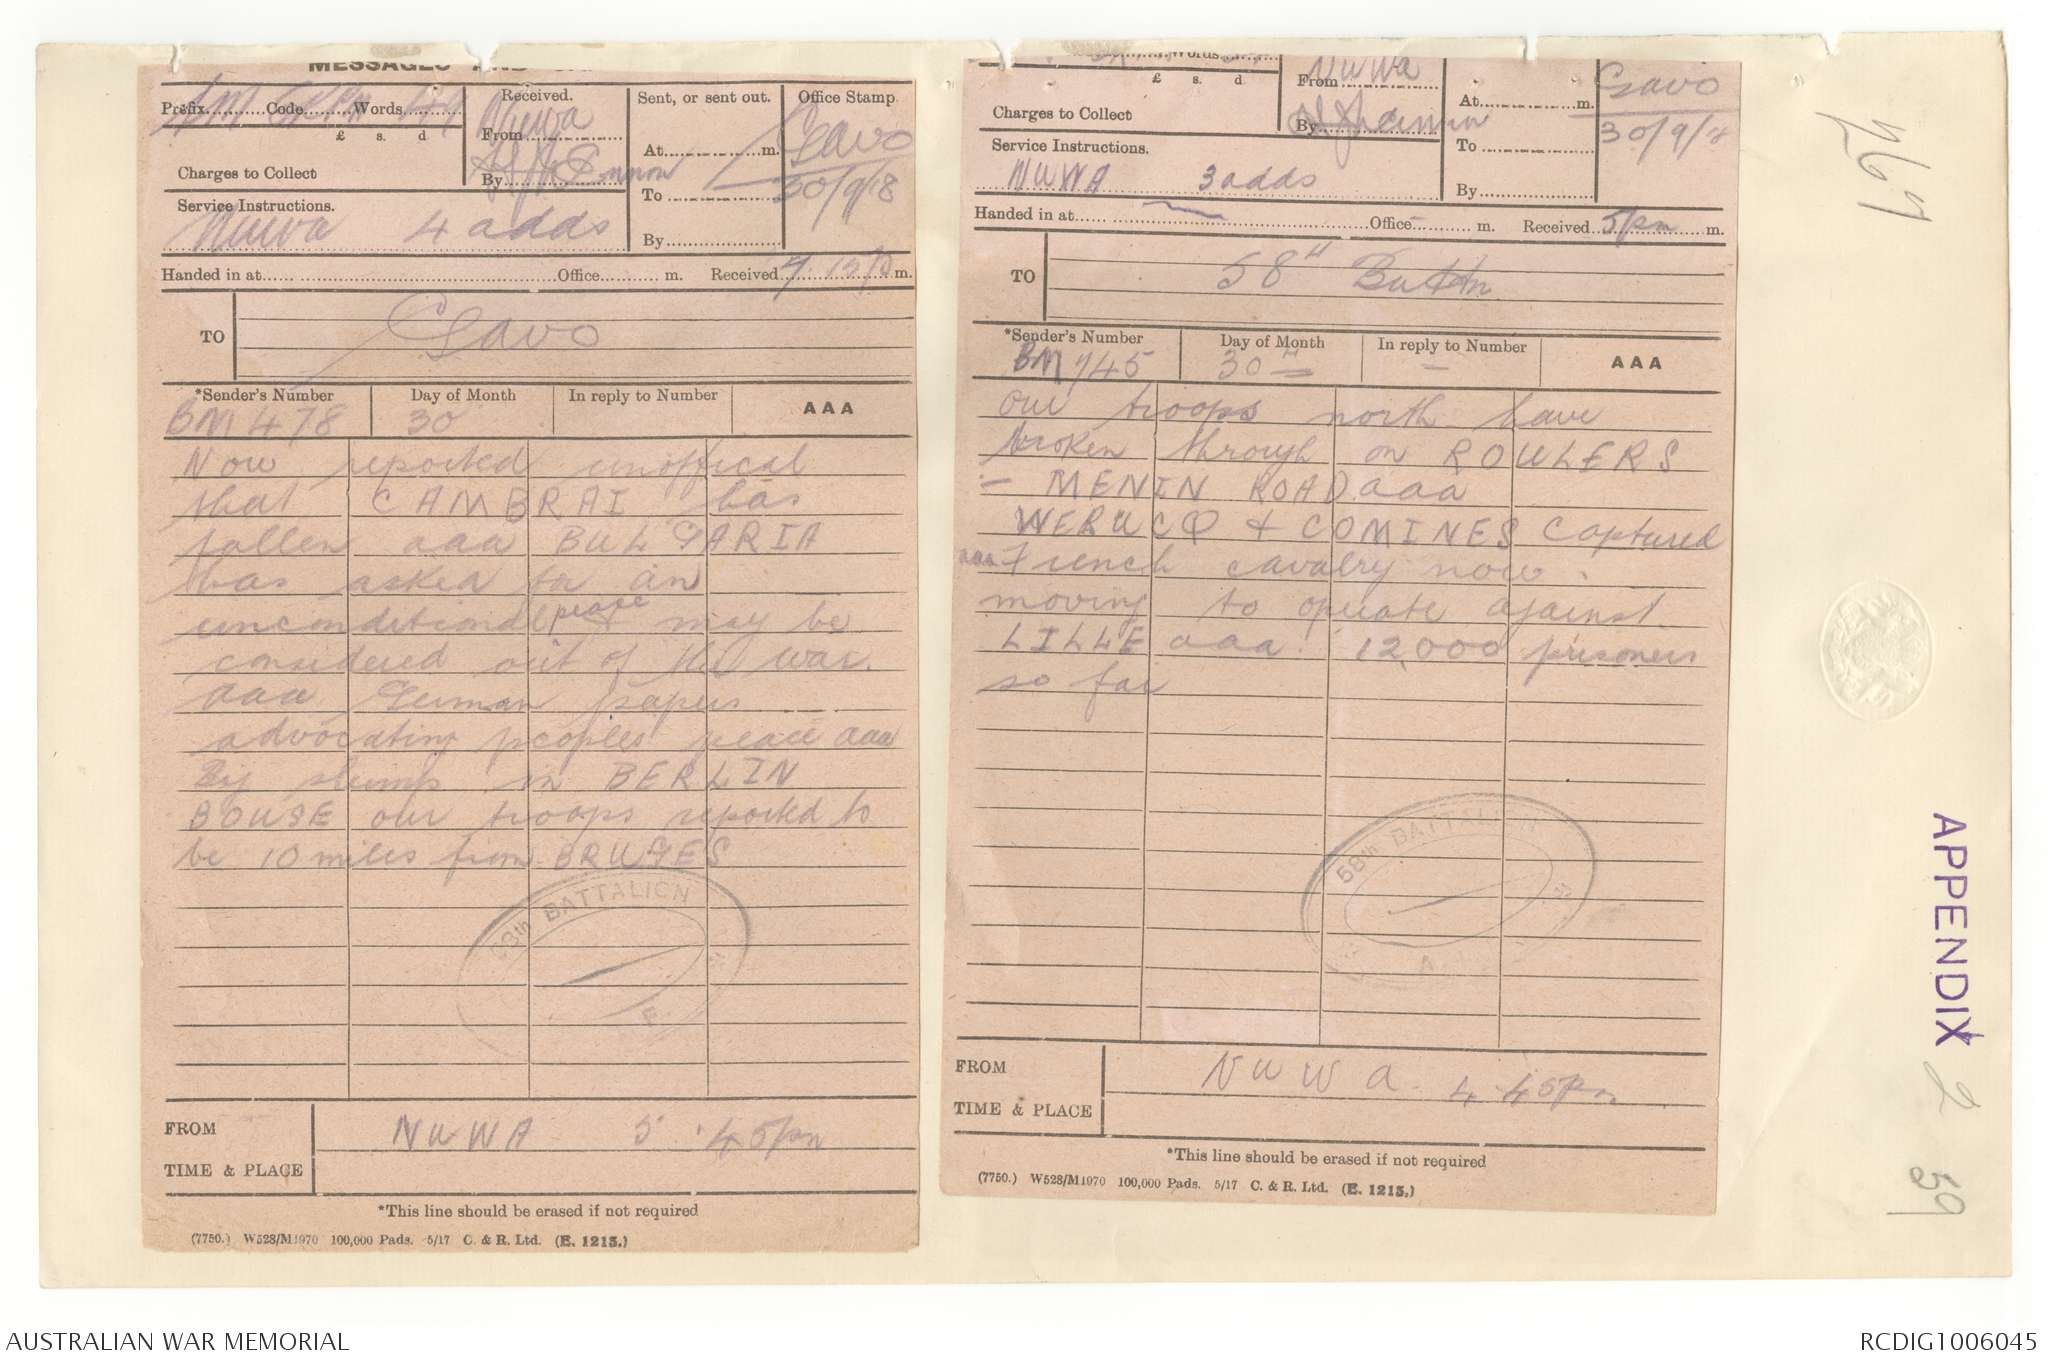 MESSAGES AND
Prefix SM Code Words
£ s. d
Charges to Collect
Received.
From Nuwa
By
Sent, or sent out.
At m.
To
By
Office Stamp
Gavo
30/9/18
Service Instructions.
Nuwa 4 adds
Handed in at Office m. Received m.
TO
Gavo
*Sender's Number Day of Month In reply to Number AAA
BM 478 30
Now reported unoffical
that CAMBRAI has
fallen aaa BULGARIA
has asked for an
unconditional peace & may be
considered out of the war.
aaa German papers
advocating peoples peace aaa
Big slump in BERLIN
BOUSE our troops reported to
be 10 miles from BRUGES
58th BATTALION
FROM
TIME & PLACE
NUWA 5.45pm
*This line should be erased if not required
(7750.) W528/M1970 100,000 Pads. 5/17 C. & R. Ltd. (E. 1213.)
Words
£ s. d
Charges to Collect
From NuWa
By
At m.
To
By
Gavo
30/9/18
Service Instructions.
NUWA 3 adds
Handed in at Office m. Received 5pm m.
TO
58th Battn
*Sender's Number Day of Month In reply to Number AAA
BM 745 30th -
our troops north have
broken through on ROULERS
- MENIN ROAD aaa
WERUCQ & COMINES Captured
aaa French cavalry now
moving to operate against
LILLE aaa 12,000 prisoners
so far
58th BATTALION
FROM
TIME & PLACE
NUWA 4.45pm
*This line should be erased if not required
(7750.) W528/M1970 100,000 Pads. 5/17 C. & R. Ltd. (E. 1213.)
APPENDIX 2
59
AUSTRALIAN WAR MEMORIAL
RCDIG1006045